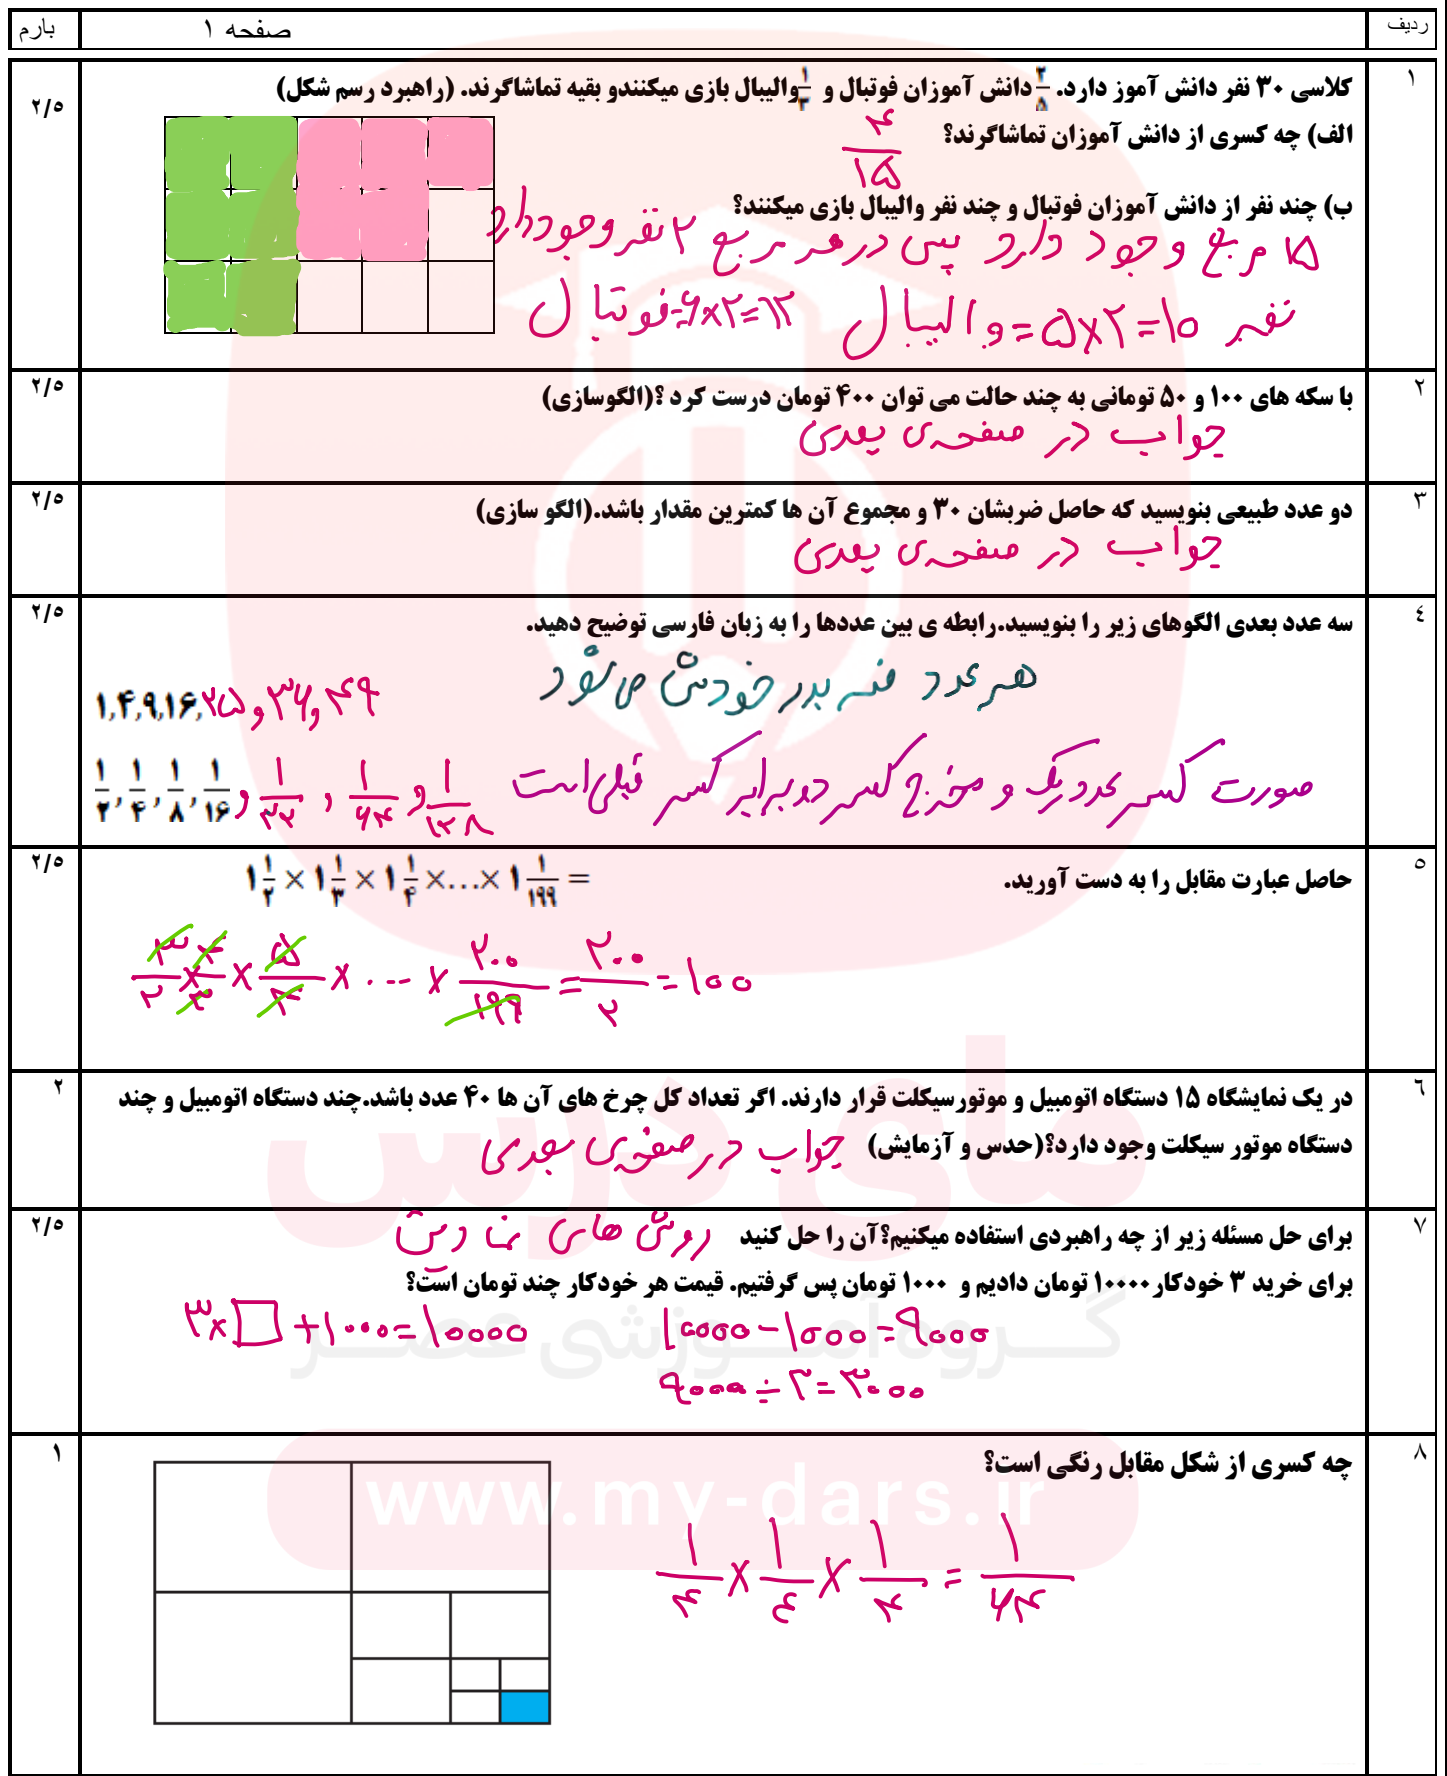 ردیف صفحه ۱ بارم
۱ کلاسی ۳۰ نفر دانش آموز دارد. ۲/۵ دانش آموزان فوتبال و ۱/۳ والیبال بازی میکنندو بقیه تماشاگرند. (راهبرد رسم شکل) ۲/۵
الف) چه کسری از دانش آموزان تماشاگرند؟ ۴/۱۵
ب) چند نفر از دانش آموزان فوتبال و چند نفر والیبال بازی میکنند؟
۱۵ مربع وجود دارد پس در هر مربع ۲ نفر وجود دارد
نفر ۱۰=۲×۵= والیبال ۱۲=۲×۶=فوتبال
۲ با سکه های ۱۰۰ و ۵۰ تومانی به چند حالت می توان ۴۰۰ تومان درست کرد ؟(الگوسازی) ۲/۵
جواب در صفحه‌ی بعدی
۳ دو عدد طبیعی بنویسید که حاصل ضربشان ۳۰ و مجموع آن ها کمترین مقدار باشد.(الگو سازی) ۲/۵
جواب در صفحه‌ی بعدی
٤ سه عدد بعدی الگوهای زیر را بنویسید.رابطه ی بین عددها را به زبان فارسی توضیح دهید. ۲/۵
هر عدد ضربدر خودش می شود
۱,۴,۹,۱۶,۲۵,۳۶,۴۹
صورت کسر عدد یک و مخرج کسر دو برابر کسر قبلی است
۱/۲, ۱/۴, ۱/۸, ۱/۱۶, ۱/۳۲, ۱/۶۴, ۱/۱۲۸
٥ حاصل عبارت مقابل را به دست آورید. ۱ ۱/۲ × ۱ ۱/۳ × ۱ ۱/۴ ×...× ۱ ۱/۱۹۹ = ۲/۵
۳/۲ × ۴/۳ × ۵/۴ × ... × ۲۰۰/۱۹۹ = ۲۰۰/۲ = ۱۰۰
٦ در یک نمایشگاه ۱۵ دستگاه اتومبیل و موتورسیکلت قرار دارند. اگر تعداد کل چرخ های آن ها ۴۰ عدد باشد.چند دستگاه اتومبیل و چند ۲
دستگاه موتور سیکلت وجود دارد؟(حدس و آزمایش) جواب در صفحه‌ی بعدی
۷ برای حل مسئله زیر از چه راهبردی استفاده میکنیم؟آن را حل کنید روش های نمادین ۲/۵
برای خرید ۳ خودکار ۱۰۰۰۰ تومان دادیم و ۱۰۰۰ تومان پس گرفتیم. قیمت هر خودکار چند تومان است؟
۳×□+۱۰۰۰=۱۰۰۰۰ ۱۰۰۰۰-۱۰۰۰=۹۰۰۰
۹۰۰۰÷۳=۳۰۰۰
۸ چه کسری از شکل مقابل رنگی است؟ ۱
۱/۴ × ۱/۴ × ۱/۴ = ۱/۶۴
مای درس
گروه آموزشی عصر
www.my-dars.ir